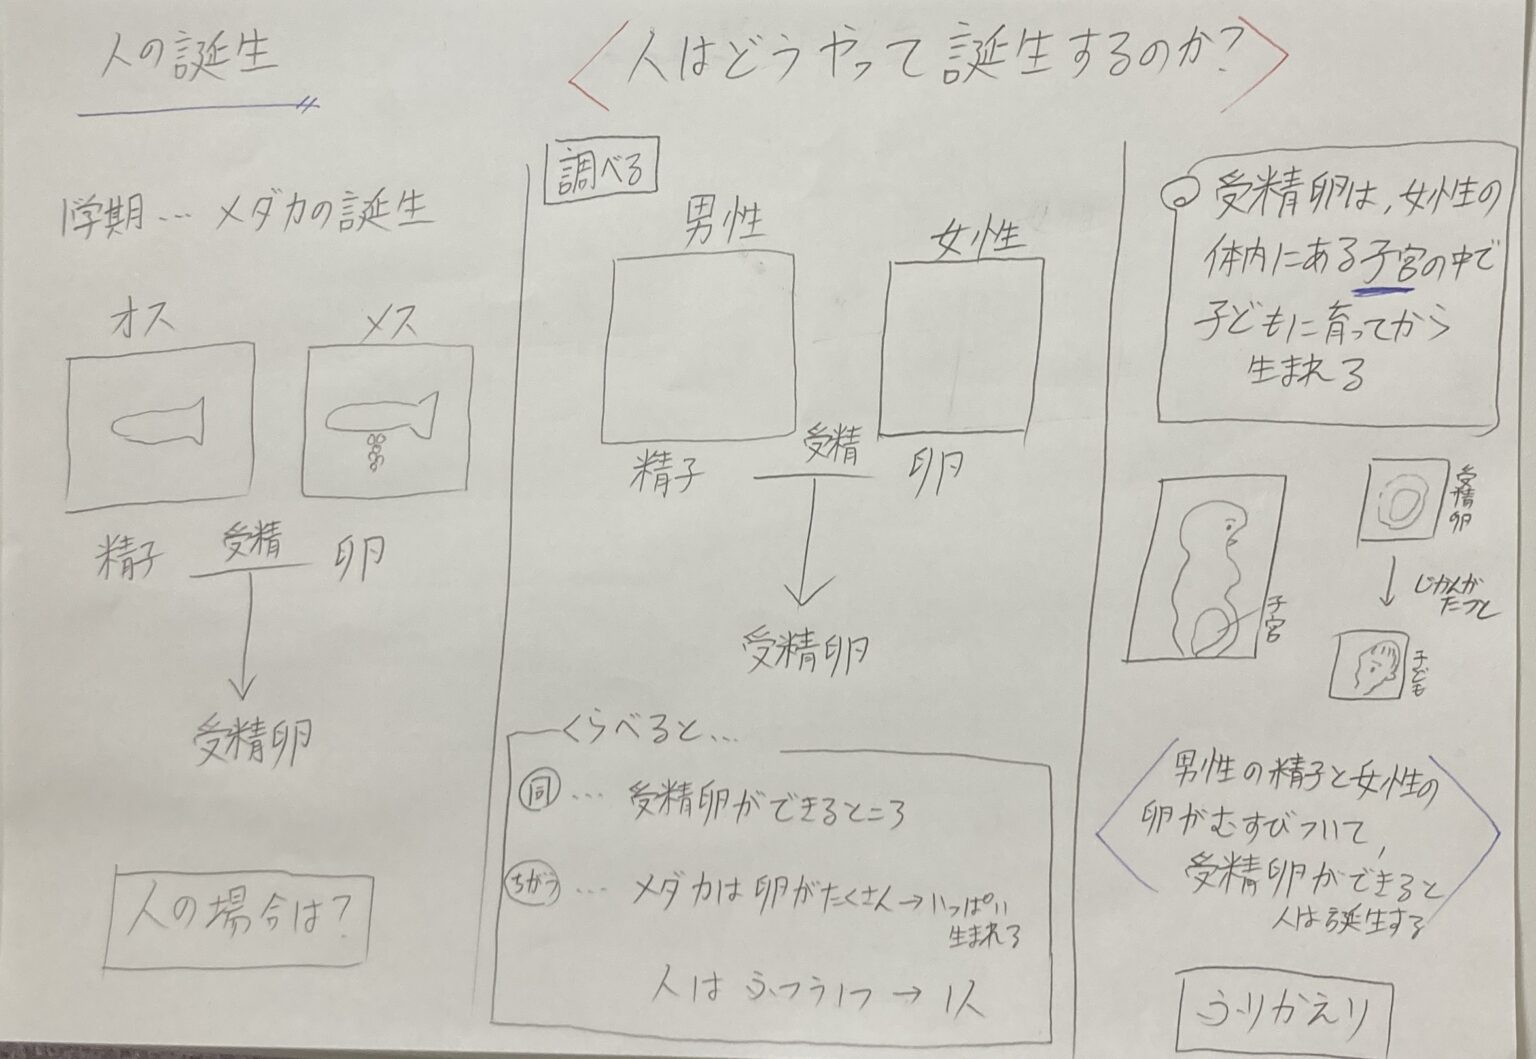 人の誕生
人はどうやって誕生するのか?
1学期… メダカの誕生
オス
メス
精子
受精
卵
受精卵
人の場合は?
調べる
男性
女性
精子
受精
卵
受精卵
くらべると…
同 … 受精卵ができるところ
ちがう … メダカは卵がたくさん→いっぱい
生まれる
人はふつう1つ→1人
受精卵は,女性の
体内にある子宮の中で
子どもに育ってから
生まれる
子宮
受精卵
じかんが
たつと
子ども
男性の精子と女性の
卵がむすびついて,
受精卵ができると
人は誕生する
ふりかえり